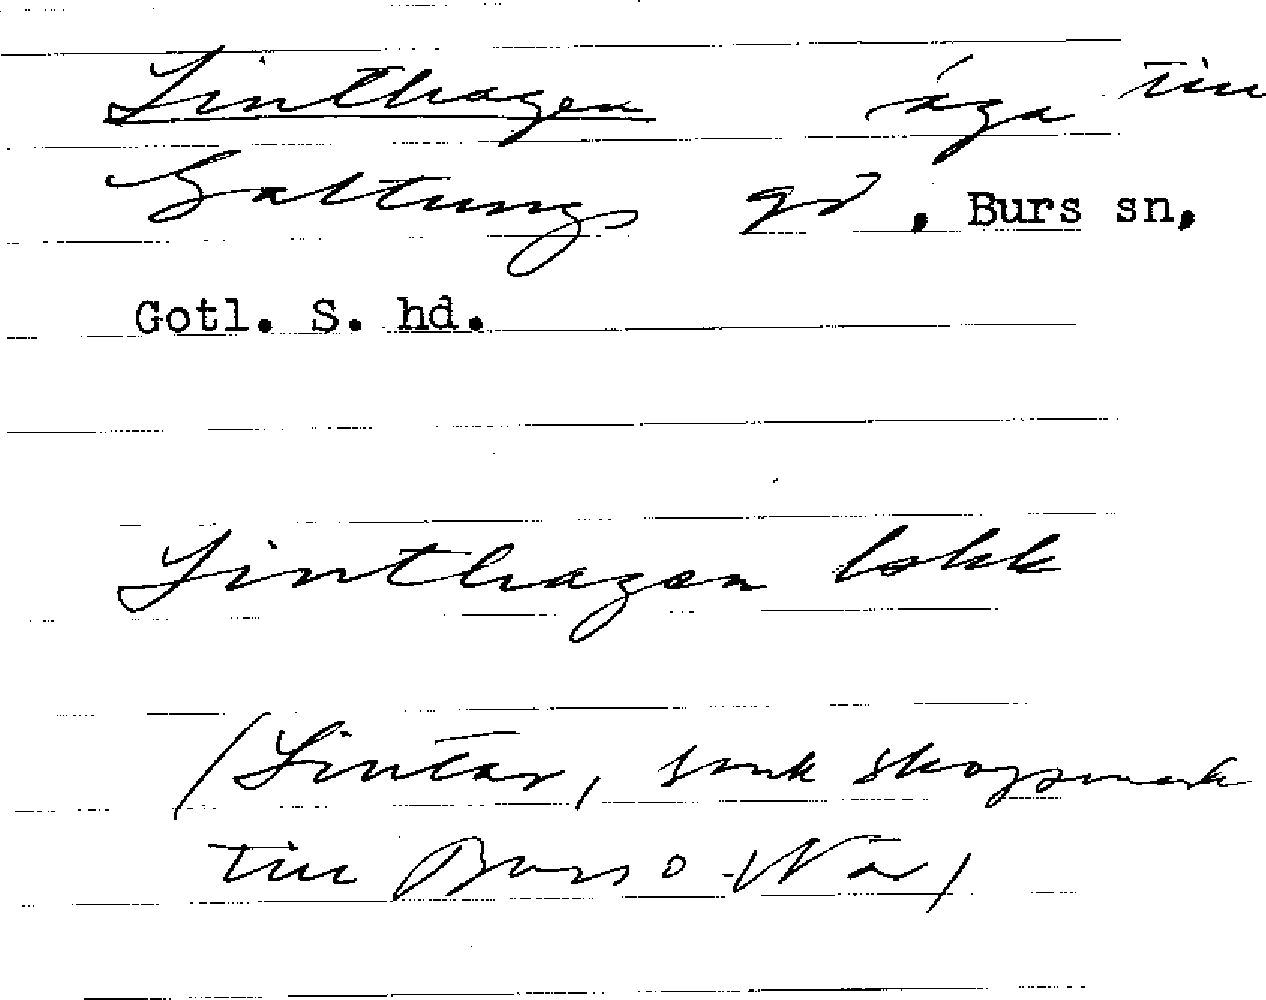 Linthagen äga till
Galtungs gd, Burs sn,
Gotl. S. hd.
Linthagen lokk
(Lintar, sank skogsmark
till Burs o När)